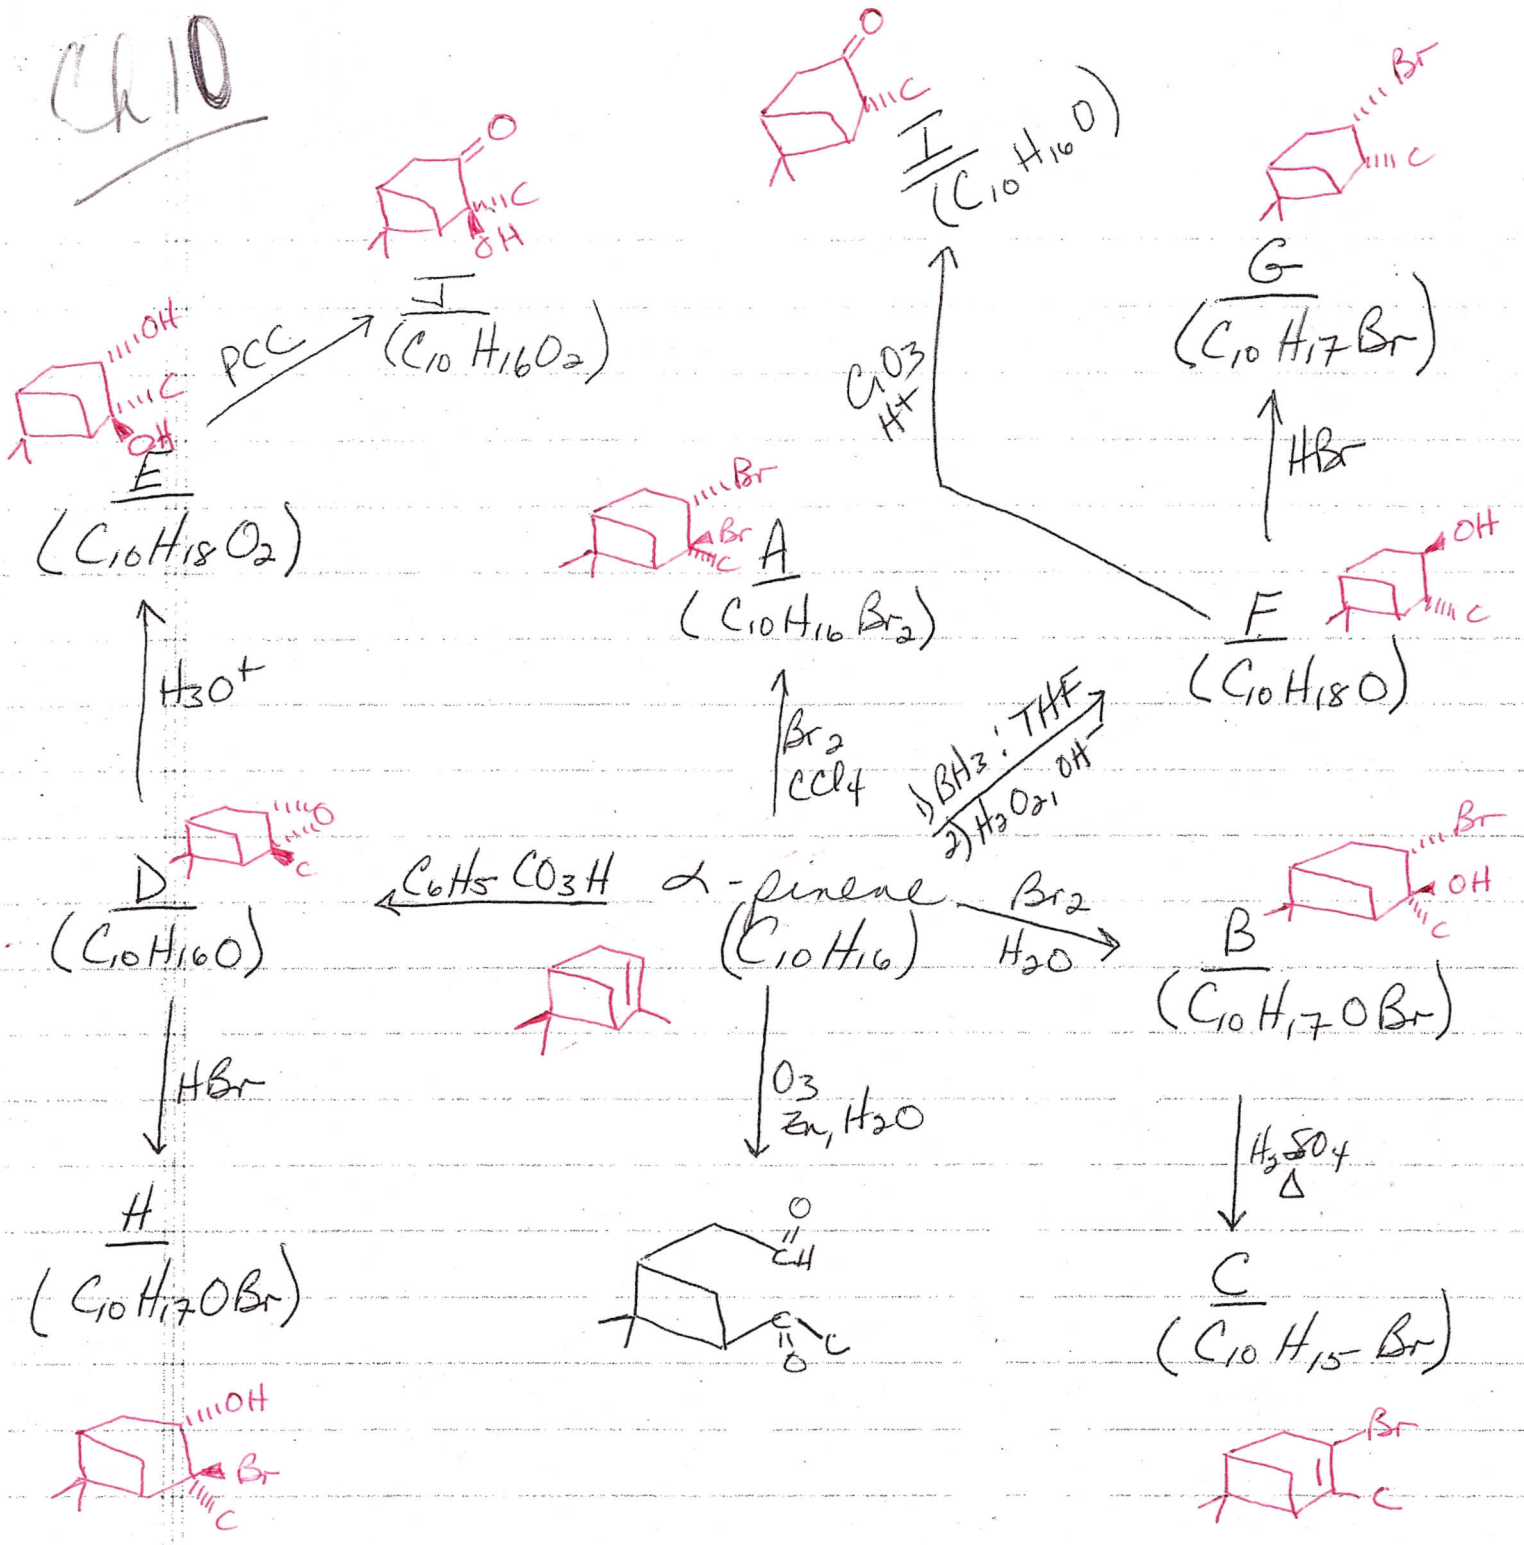 Ch 10
O
C
I
(C10H16O)
Br
C
G
(C10H17Br)
O
C
OH
J
(C10H16O2)
OH
C
OH
E
(C10H18O2)
PCC
CrO3
H+
HBr
Br
Br
C
A
(C10H16Br2)
OH
C
F
(C10H18O)
H3O+
Br2
CCl4
1) BH3:THF
2) H2O2, OH-
O
O
C
D
(C10H16O)
C6H5CO3H
α-pinene
(C10H16)
Br2
H2O
Br
OH
C
B
(C10H17OBr)
HBr
O3
Zn, H2O
H2SO4
Δ
H
(C10H17OBr)
O
CH
C
O
C
C
(C10H15Br)
OH
Br
C
Br
C